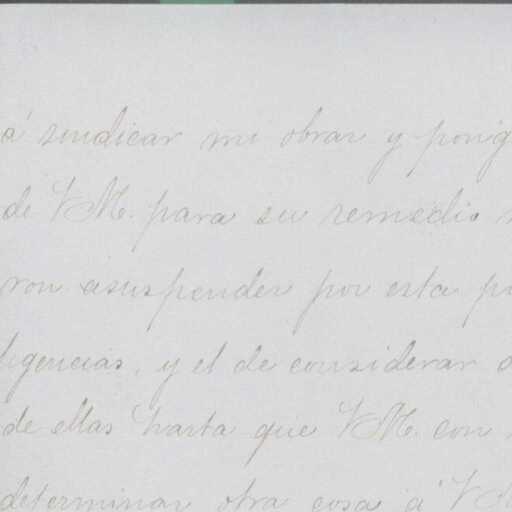 á sindicar mi obrar y pong
de VM. para su remedio
ron asuspender por esta p
ligencias, y el de considerar
de ellas hasta que VM. con
determinar otra cosa á VM